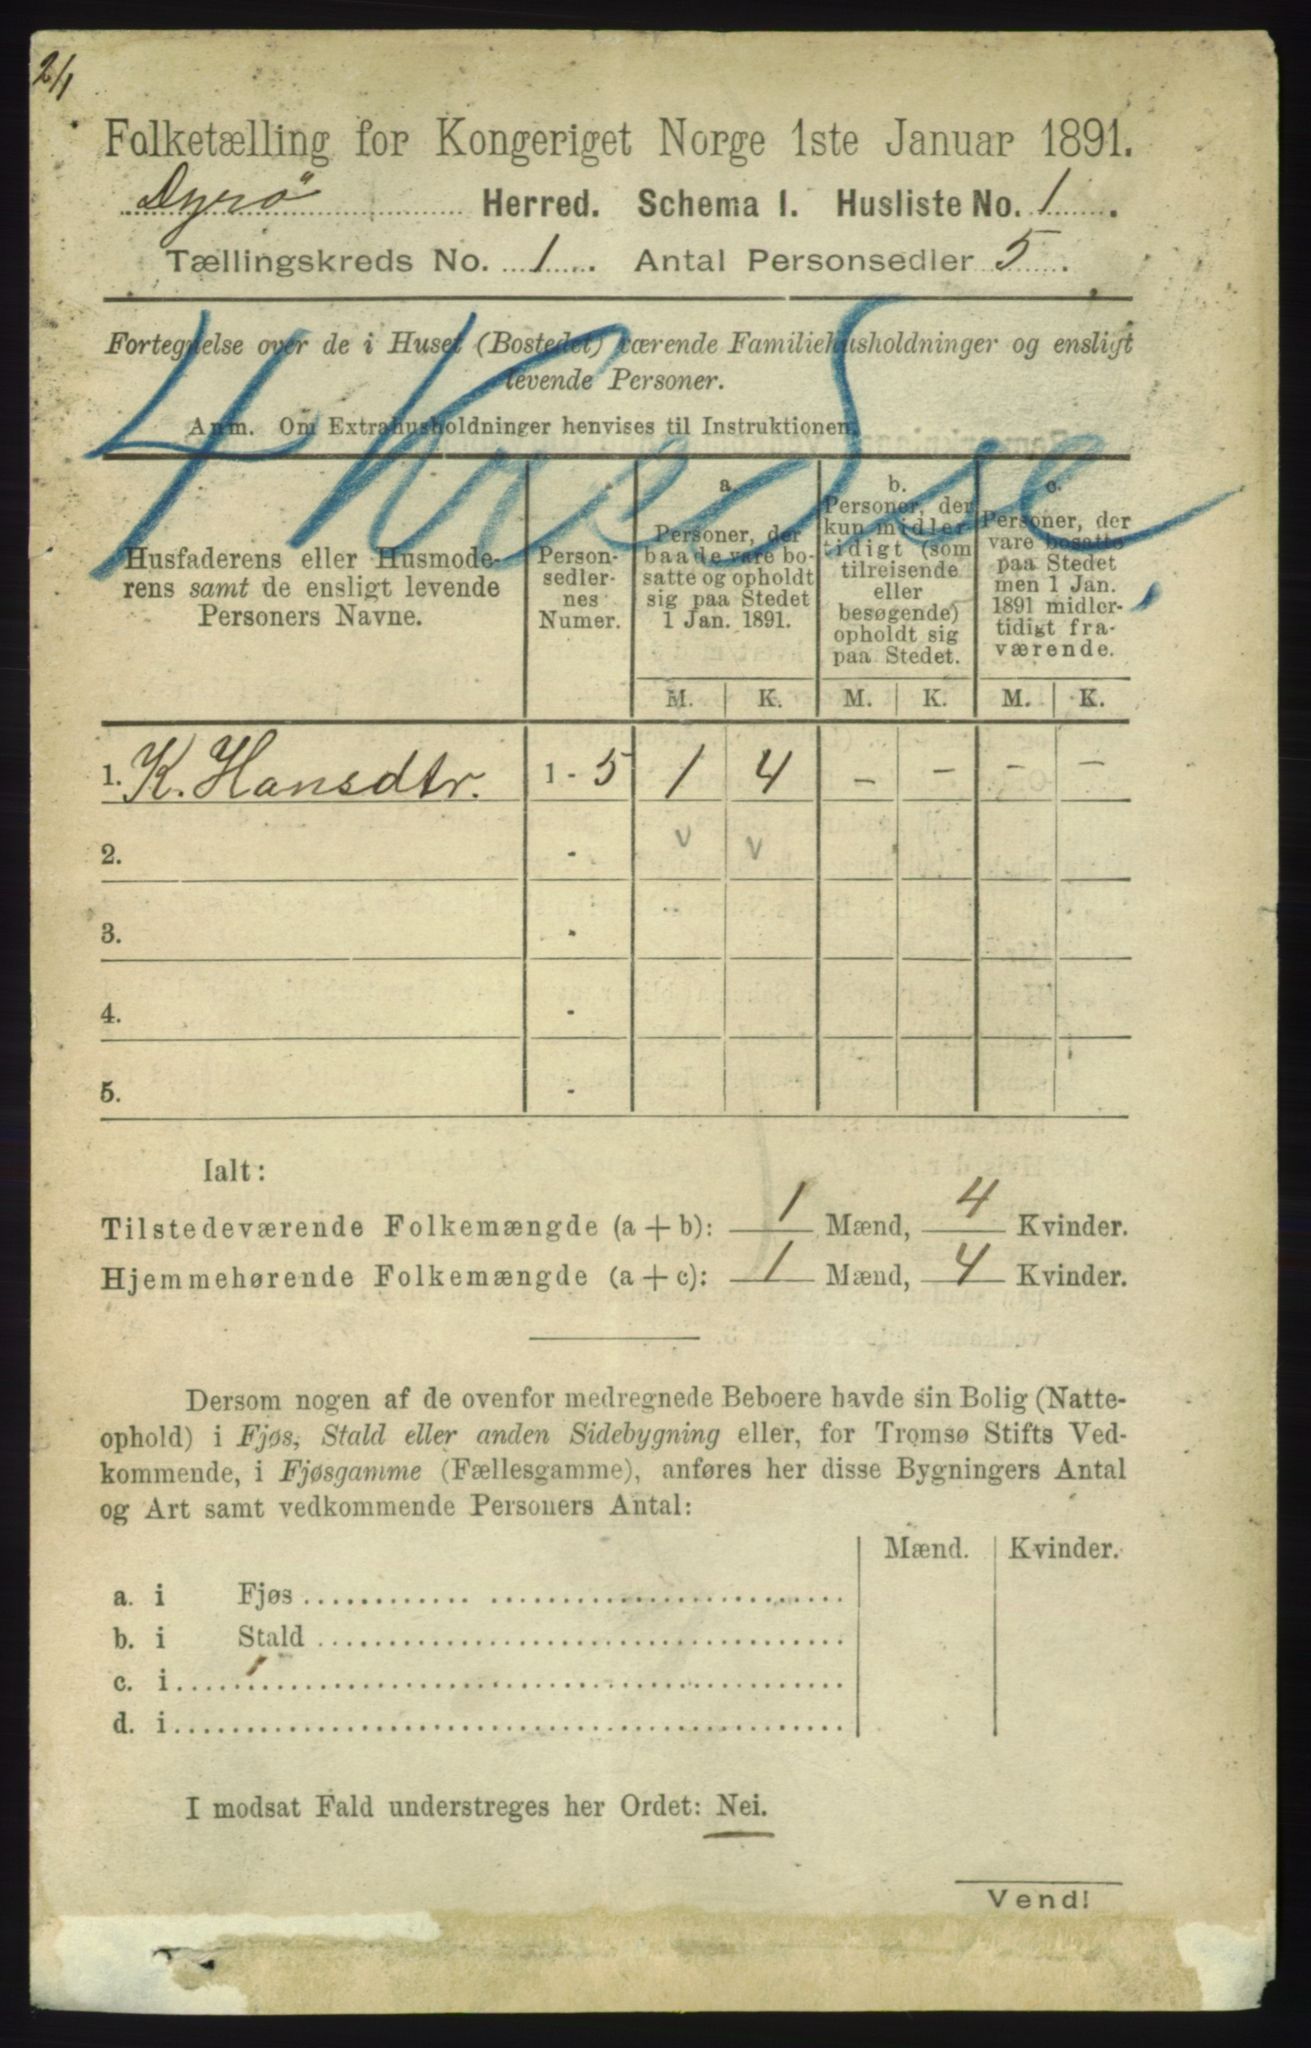 2/1
Folketælling for Kongeriget Norge 1ste Januar 1891.
Dyrö Herred. Schema I. Husliste No. 1.
Tællingskreds No. 1. Antal Personsedler 5.
Fortegnelse over de i Huset (Bostedet) værende Familiehusholdninger og ensligt
levende Personer.
Anm. Om Extrahusholdninger henvises til Instruktionen.
4 Kredse
Husfaderens eller Husmode-
rens samt de ensligt levende
Personers Navne.
Person-
sedler-
nes
Numer.
a.
Personer, der
baade vare bo-
satte og opholdt
sig paa Stedet
1 Jan. 1891.
b.
Personer, der
kun midler-
tidigt (som
tilreisende
eller
besøgende)
opholdt sig
paa Stedet.
c.
Personer, der
vare bosatte
paa Stedet
men 1 Jan.
1891 midler-
tidigt fra-
værende.
M. K. M. K. M. K.
1. K. Hansdtr. 1 - 5 1 4 - - - -
2. - v v
3. -
4. -
5. -
Ialt:
Tilstedeværende Folkemængde (a + b): 1 Mænd, 4 Kvinder.
Hjemmehørende Folkemængde (a + c): 1 Mænd, 4 Kvinder.
Dersom nogen af de ovenfor medregnede Beboere havde sin Bolig (Natte-
ophold) i Fjøs, Stald eller anden Sidebygning eller, for Tromsø Stifts Ved-
kommende, i Fjøsgamme (Fællesgamme), anføres her disse Bygningers Antal
og Art samt vedkommende Personers Antal:
Mænd. Kvinder.
a. i Fjøs
b. i Stald
c. i
d. i
I modsat Fald understreges her Ordet: Nei.
Vend!